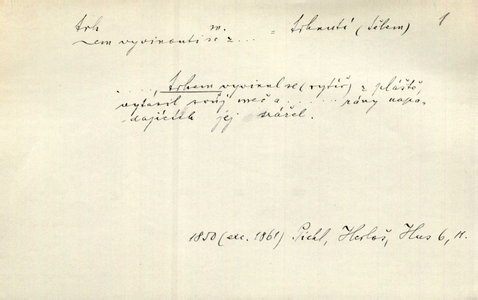 trh m. = trhnutí (tělem) 1
~em vyvinouti se z ...
....., trhem vyvinul se (rytíř) z pláště,
vytasil svůj meč a ..... rány napa-
dajících jej srážel.
1850 (exc. 1861) Pichl, Herloš, Hus 6, 11.